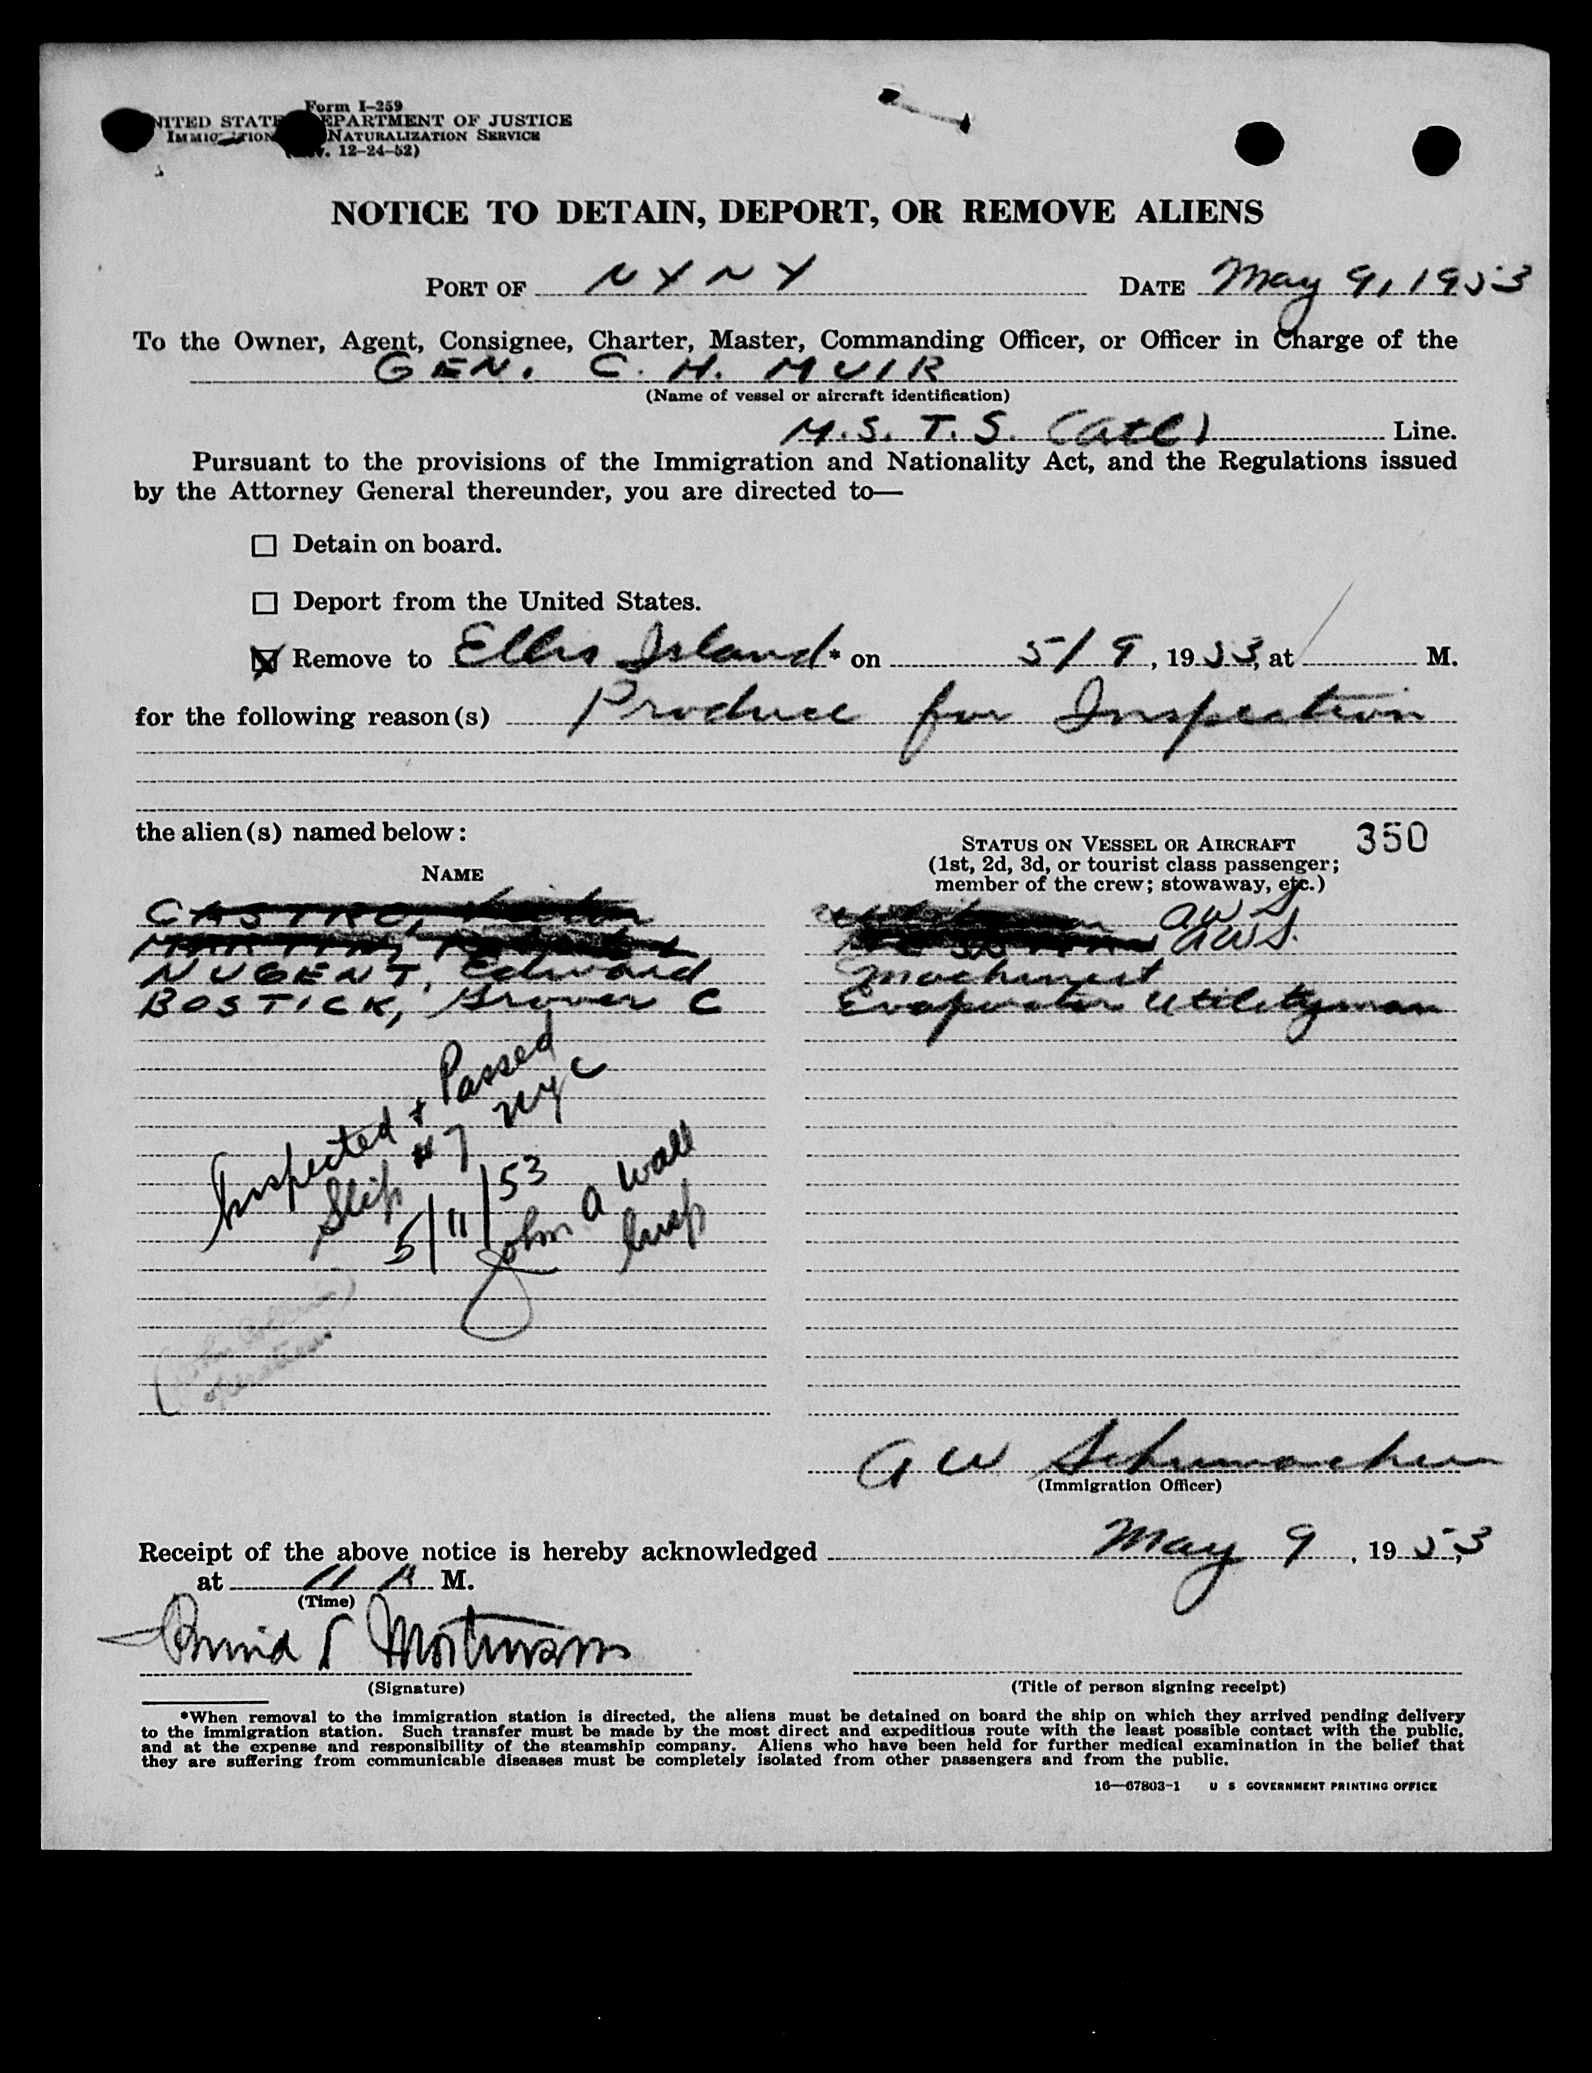 Form I-259
UNITED STATES DEPARTMENT OF JUSTICE
IMMIGRATION NATURALIZATION SERVICE
12-24-52)
NOTICE TO DETAIN, DEPORT, OR REMOVE ALIENS
PORT OF NYNY DATE May 9, 1953
To the Owner, Agent, Consignee, Charter, Master, Commanding Officer, or Officer in Charge of the
GEN. C. H. MUIR
(Name of vessel or aircraft identification)
M.S.T.S. (Atl) Line.
Pursuant to the provisions of the Immigration and Nationality Act, and the Regulations issued
by the Attorney General thereunder, you are directed to—
Detain on board.
Deport from the United States.
Remove to Ellis Island* on 5/9, 1953, at M.
for the following reason(s) Produce for Inspection
the alien(s) named below:
STATUS ON VESSEL OR AIRCRAFT 350
(1st, 2d, 3d, or tourist class passenger;
member of the crew; stowaway, etc.)
NAME
CASTRO, AWS
MARTIN, AWS.
NUGENT, Edward Machinist
BOSTICK, Grover C Evaporator Utilityman
Inspected + Passed
Slip #7 NYC
5/11/53
John A Wall
Insp
A W Schumacher
(Immigration Officer)
Receipt of the above notice is hereby acknowledged May 9, 1953,
at 11 A M.
(Time)
(Signature) (Title of person signing receipt)
*When removal to the immigration station is directed, the aliens must be detained on board the ship on which they arrived pending delivery
to the immigration station. Such transfer must be made by the most direct and expeditious route with the least possible contact with the public,
and at the expense and responsibility of the steamship company. Aliens who have been held for further medical examination in the belief that
they are suffering from communicable diseases must be completely isolated from other passengers and from the public.
16—67803-1 U S GOVERNMENT PRINTING OFFICE